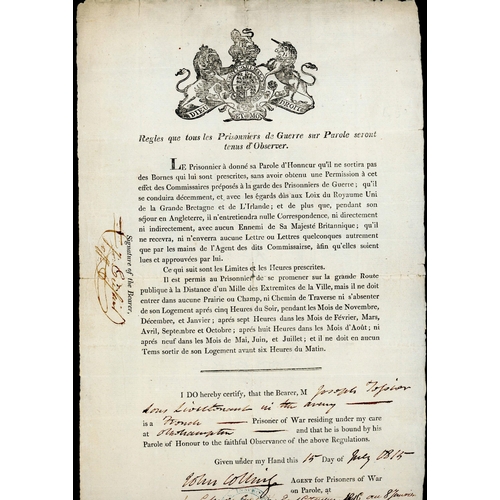 DIEU ET MON DROIT
Regles que tous les Prisonniers de Guerre sur Parole seront
tenus d'Observer.
LE Prisonnier à donné sa Parole d'Honneur qu'il ne sortira pas
des Bornes qui lui sont prescrites, sans avoir obtenu une Permission à cet
effet des Commissaires préposés à la garde des Prisonniers de Guerre; qu'il
se conduira décemment, et avec les égards dûs aux Loix du Royaume Uni
de la Grande Bretagne et de L'Irlande; et de plus que, pendant son
séjour en Angleterre, il n'entretiendra nulle Correspondence, ni directement
ni indirectement, avec aucun Ennemi de Sa Majesté Britannique; qu'il
ne recevra, ni n'enverra aucune Lettre ou Lettres quelconques autrement
que par les mains de l'Agent des dits Commissaires, àfin qu'elles soient
lues et approuvées par lui.
Ce qui suit sont les Limites et les Heures prescrites.
Il est permis au Prisonnier de se promener sur la grande Route
publique à la Distance d'un Mille des Extremites de la Ville, mais il ne doit
entrer dans aucune Prairie ou Champ, ni Chemin de Traverse ni s'absenter
de son Logement après cinq Heures du Soir, pendant les Mois de Novembre,
Décembre, et Janvier; après sept Heures dans les Mois de Février, Mars,
Avril, Septembre et Octobre; après huit Heures dans les Mois d'Août; ni
après neuf dans les Mois de Mai, Juin, et Juillet; et il ne doit en aucun
Tems sortir de son Logement avant six Heures du Matin.
Signature of the Bearer,
I DO hereby certify, that the Bearer, M Joseph
in the
is a French Prisoner of War residing under my care
at and that he is bound by his
Parole of Honour to the faithful Observance of the above Regulations.
Given under my Hand this 15 Day of July 1815
John AGENT for Prisoners of War
on Parole, at